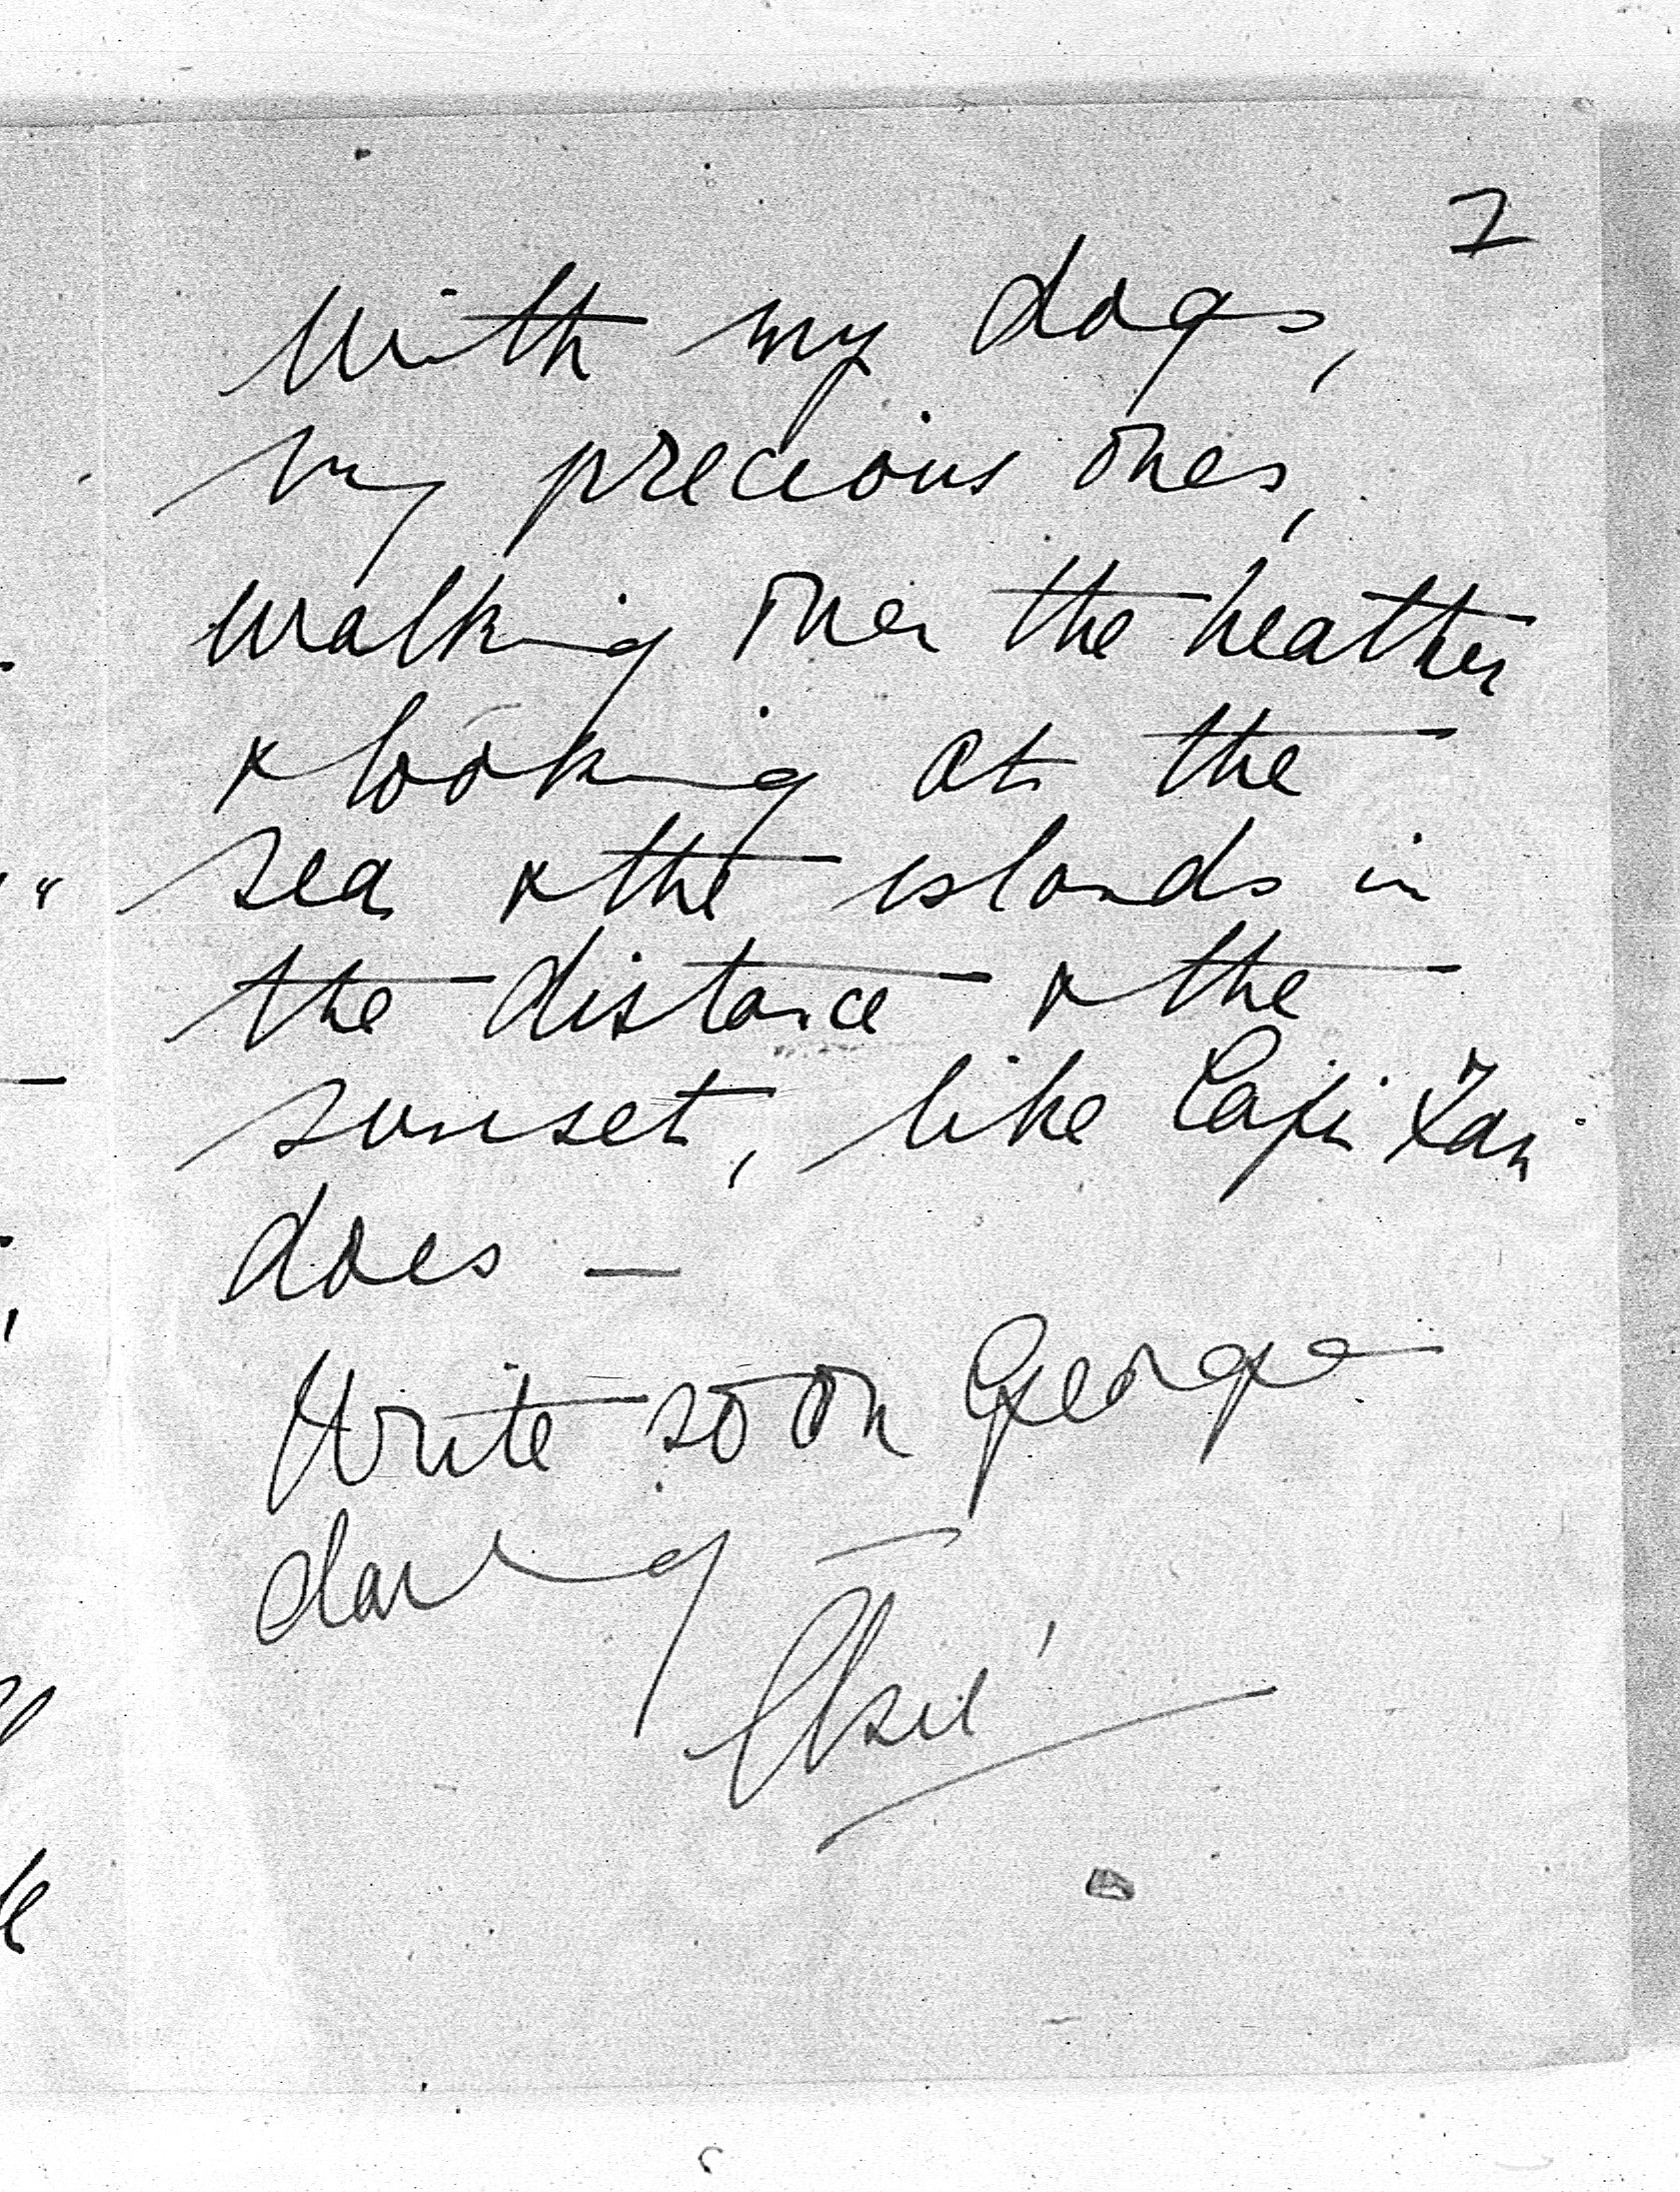 7
with my dogs,
my precious ones,
walking over the heather
& looking at the
sea & the islands in
the distance & the
sunset, like
does —
Write soon George
darling —
Elsie